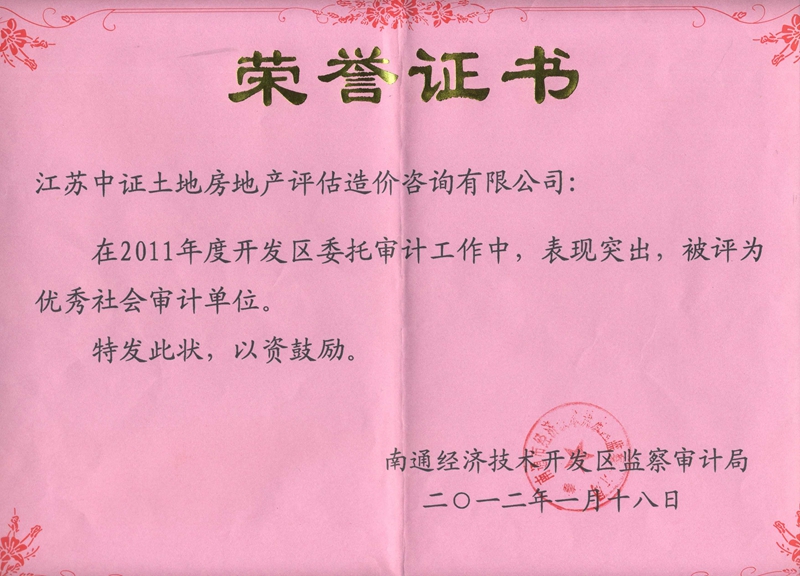 荣誉证书
江苏中证土地房地产评估造价咨询有限公司：
在2011年度开发区委托审计工作中，表现突出，被评为
优秀社会审计单位。
特发此状，以资鼓励。
南通经济技术开发区监察审计局
二〇一二年一月十八日